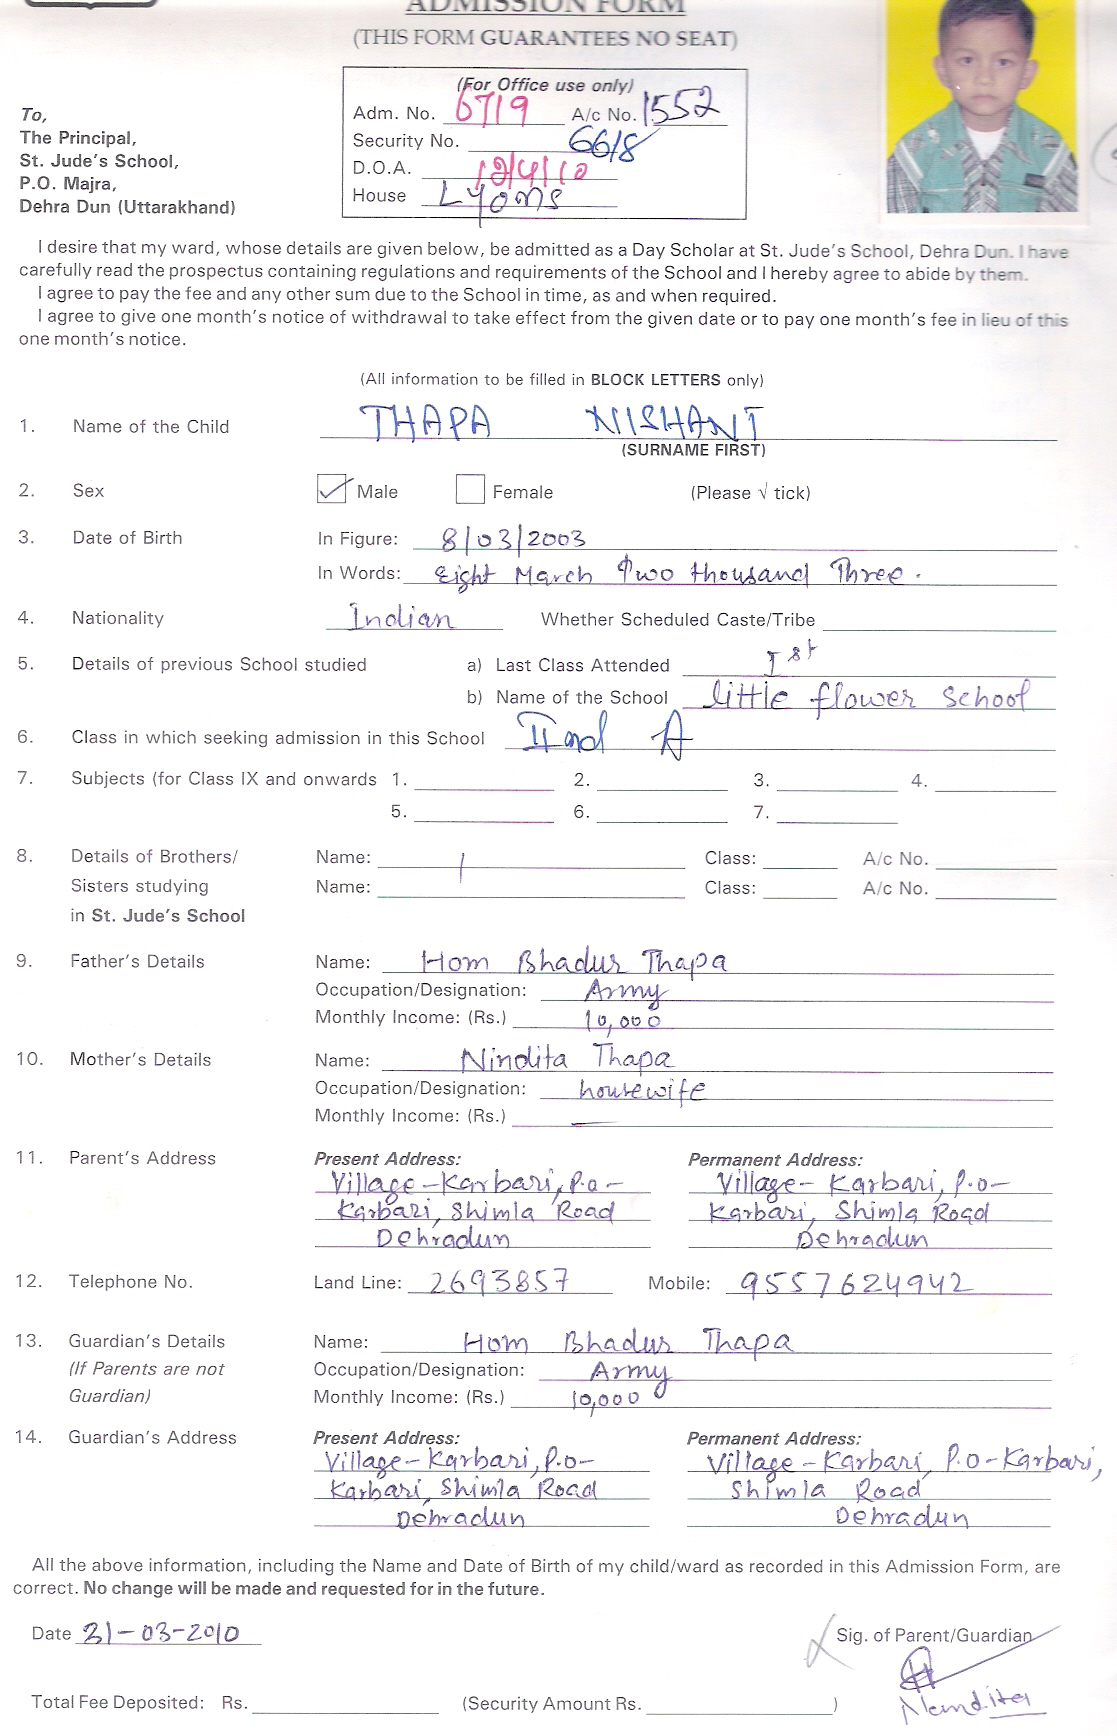 ADMISSION FORM
(THIS FORM GUARANTEES NO SEAT)
(For Office use only)
Adm. No. 6719 A/c No. 1552
Security No. 6618
D.O.A. 12/4/10
House Lyons
To,
The Principal,
St. Jude's School,
P.O. Majra,
Dehra Dun (Uttarakhand)
I desire that my ward, whose details are given below, be admitted as a Day Scholar at St. Jude's School, Dehra Dun. I have
carefully read the prospectus containing regulations and requirements of the School and I hereby agree to abide by them.
I agree to pay the fee and any other sum due to the School in time, as and when required.
I agree to give one month's notice of withdrawal to take effect from the given date or to pay one month's fee in lieu of this
one month's notice.
(All information to be filled in BLOCK LETTERS only)
1. Name of the Child THAPA NISHANT
(SURNAME FIRST)
2. Sex Male Female (Please √ tick)
3. Date of Birth In Figure: 8/03/2003
In Words: Eight March Two thousand Three.
4. Nationality Indian Whether Scheduled Caste/Tribe
5. Details of previous School studied a) Last Class Attended Ist
b) Name of the School little flower school
6. Class in which seeking admission in this School IInd A
7. Subjects (for Class IX and onwards 1. 2. 3. 4.
5. 6. 7.
8. Details of Brothers/ Name: Class: A/c No.
Sisters studying Name: Class: A/c No.
in St. Jude's School
9. Father's Details Name: Hom Bhadur Thapa
Occupation/Designation: Army
Monthly Income: (Rs.) 10,000
10. Mother's Details Name: Nindita Thapa
Occupation/Designation: housewife
Monthly Income: (Rs.) —
11. Parent's Address Present Address: Permanent Address:
Village-Karbari, P.o- Village- Karbari, P.o-
Karbari, Shimla Road Karbari, Shimla Road
Dehradun Dehradun
12. Telephone No. Land Line: 2693857 Mobile: 9557624942
13. Guardian's Details Name: Hom Bhadur Thapa
(If Parents are not Occupation/Designation: Army
Guardian) Monthly Income: (Rs.) 10,000
14. Guardian's Address Present Address: Permanent Address:
Village-Karbari, P.o- Village-Karbari, P.o-Karbari,
Karbari, Shimla Road Shimla Road
Dehradun Dehradun
All the above information, including the Name and Date of Birth of my child/ward as recorded in this Admission Form, are
correct. No change will be made and requested for in the future.
Date 31-03-2010 Sig. of Parent/Guardian
Nandita
Total Fee Deposited: Rs. (Security Amount Rs. )